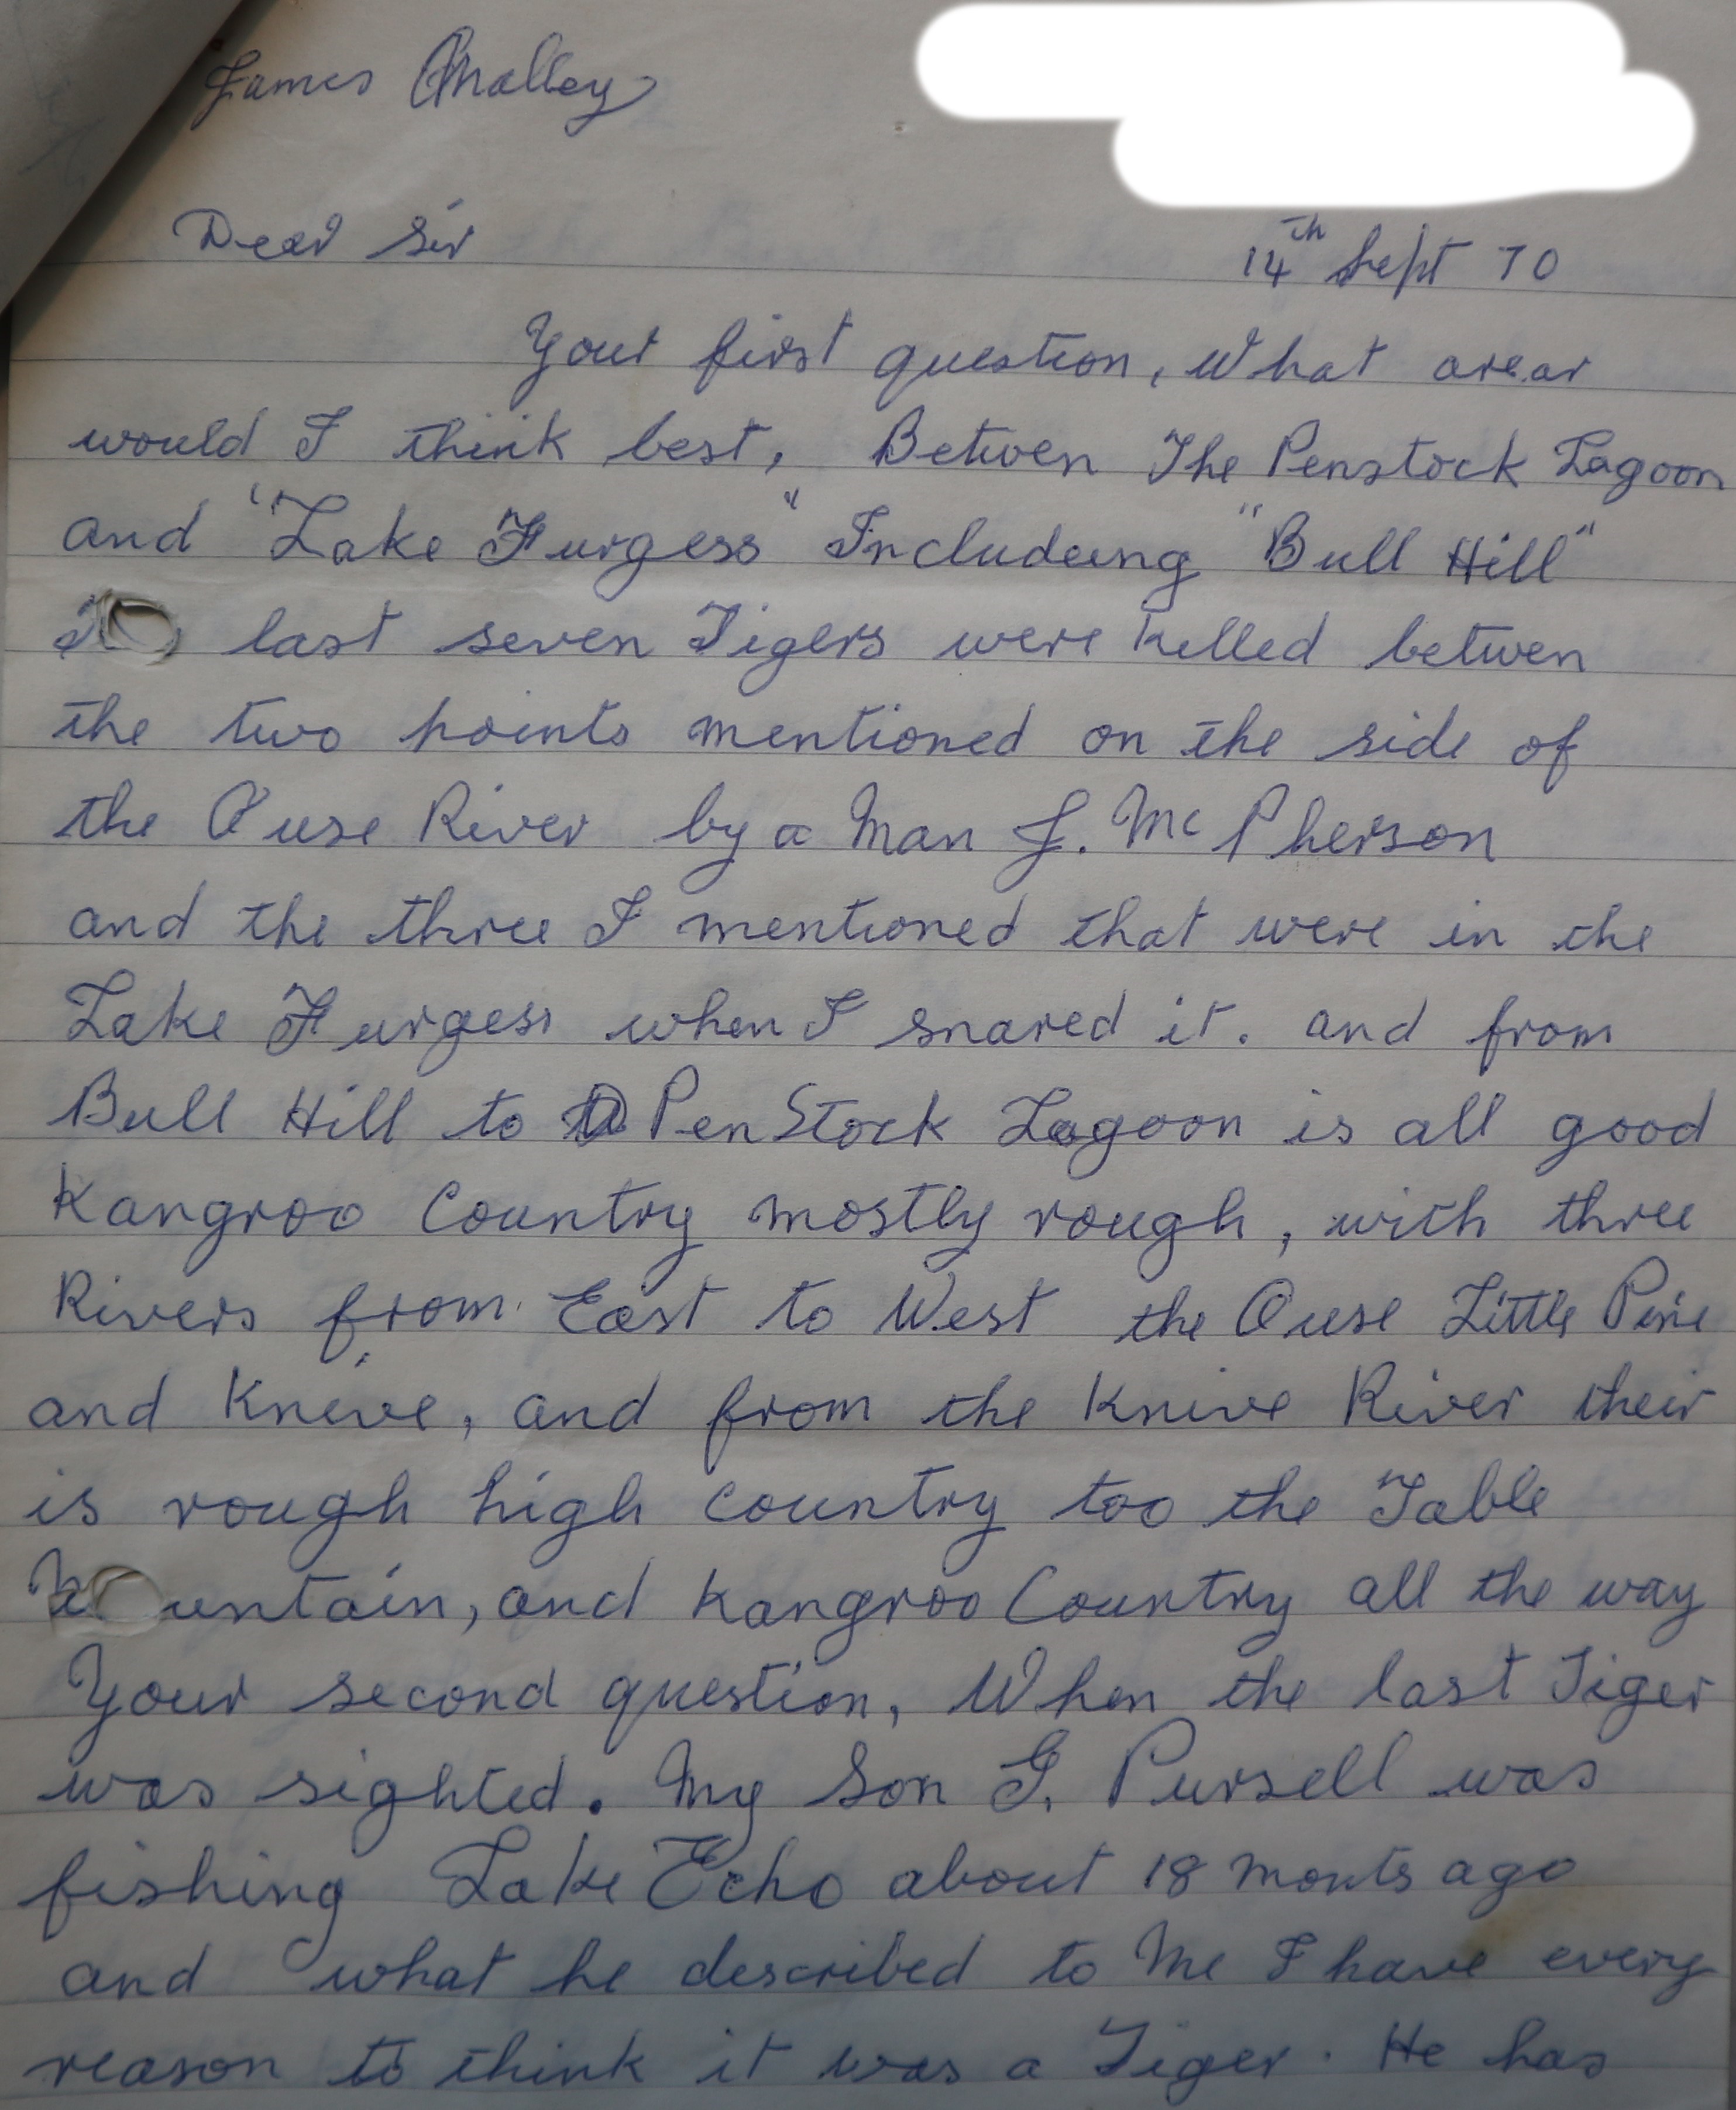 James Malley
Dear Sir
14th Sept 70
Your first question, What arear
would I think best, Betwen The Penstock Lagoon
and "Lake Furgess" Includeing "Bull Hill"
last seven Tigers were killed betwen
the two points mentioned on the side of
the Ouse River by a Man J. McPherson
and the three I mentioned that were in the
Lake Furgess when I snared it. and from
Bull Hill to PenStock Lagoon is all good
Kangroo Country mostly rough, with three
Rivers from East to West the Ouse Little Pine
and Kneve, and from the Knive River their
is rough high country too the Table
untain, and Kangroo Country all the way
Your second question, When the last Tiger
was sighted. My Son G. Pursell was
fishing Lake Echo about 18 monts ago
and what he described to Me I have every
reason to think it was a Tiger. He has